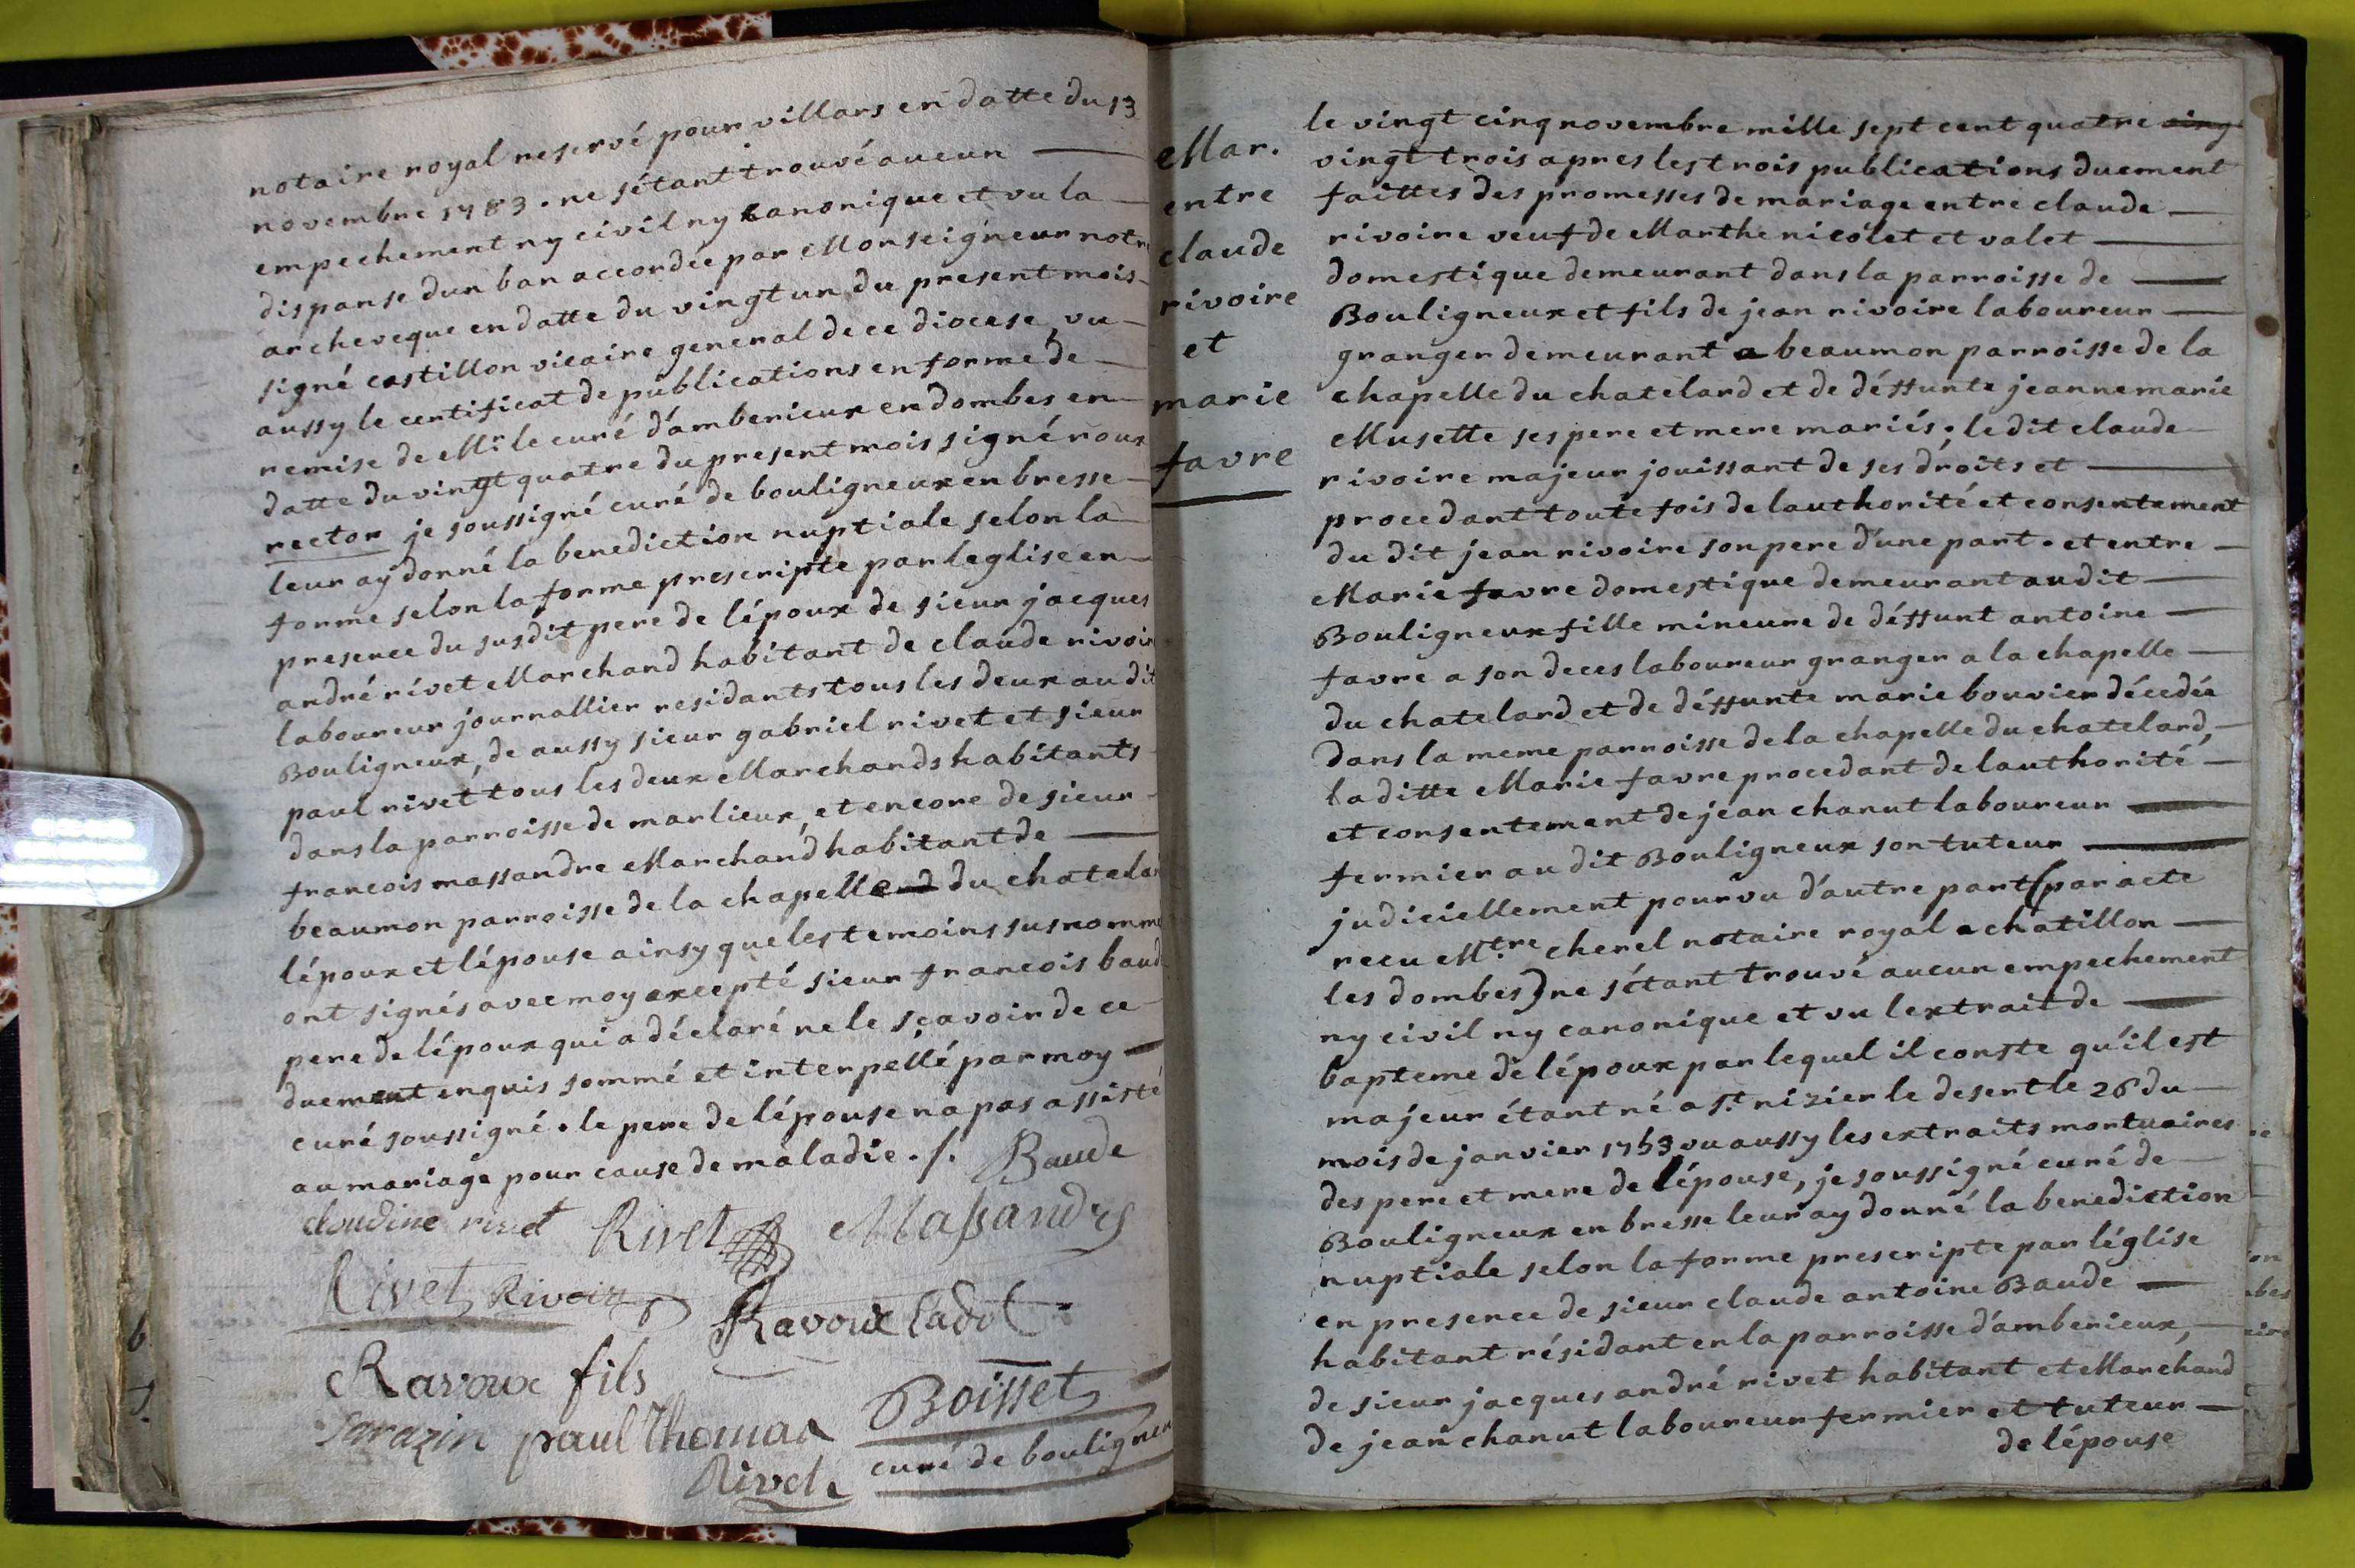 notaire royal reservé pour villars en datte du 13
novembre 1783. ne sétant trouvé aucun
empechement ny civil ny canonique et vu la
dispanse dun ban accordée par Monseigneur notre
archeveque en datte du vingt un du present mois
signé castillon vicaire general de ce diocese, vu
aussy le certificat de publications en forme de
remise de Mr. le curé d'amberieux en dombes en
datte du vingt quatre du present mois signé roux
rector je soussigné curé de bouligneux en bresse
leur ay donné la benediction nuptiale selon la
forme selon la forme prescripte par leglise en
presence du susdit pere de lépoux de sieur jacques
andré rivet Marchand habitant de claude rivoire
laboureur journallier residants tous les deux au dit
Bouligneux, de aussy sieur gabriel rivet et sieur
paul rivet tous les deux Marchands habitants
dans la parroisse de marlieux, et encore de sieur
francois massandre Marchand habitant de
beaumon parroisse de la chapelle du chatelar
lépoux et lépouse ainsy que les temoins susnomme
ont signés avec moy excepté sieur francois baud
pere de lépoux qui a déclaré ne le sçavoir de ce
duement enquis sommé et interpellé par moy
curé soussigné. le pere de lépouse na pas assisté
au mariage pour cause de maladie ./. Baude
claudine rivet Rivet Massandre
Rivet Rivoire Ravoux
Ravoux fils
Sarazin paul Thomas Boisset
Rivet curé de bouligneu
Mar.
entre
claude
rivoire
et
marie
favre
le vingt cinq novembre mille sept cent quatre ving
vingt trois apres les trois publications duement
faittes des promesses de mariage entre claude
rivoire veuf de Marthe nicolet et valet
domestique demeurant dans la parroisse de
Bouligneux et fils de jean rivoire laboureur
granger demeurant a beaumon parroisse de la
chapelle du chatelard et de déffunte jeanne marie
Musette ses pere et mere mariés; le dit claude
rivoire majeur jouissant de ses droits et
procedant toute fois de lauthorité et consentement
du dit jean rivoire son pere d'une part. et entre
Marie favre domestique demeurant au dit
Bouligneux fille mineure de déffunt antoine
favre a son deces laboureur granger a la chapelle
du chatelard et de déffunte marie bouvier décedée
dans la meme parroisse de la chapelle du chatelard,
la ditte Marie favre procedant de lauthorité
et consentement de jean chanut laboureur
fermier au dit Bouligneux son tuteur
judiciellement pourvu d'autre part (par acte
recu M.tre cherel notaire royal a chatillon
les dombes) ne sétant trouvé aucun empechement
ny civil ny canonique et vu lextrait de
bapteme de lépoux par lequel il conste qu'il est
majeur étant né a St. nizier le desert le 26 du
mois de janvier 1753 vu aussy les extraits mortuaires
des pere et mere de lépouse, je soussigné curé de
Bouligneux en bresse leur ay donné la benediction
nuptiale selon la forme prescripte par léglise
en presence de sieur claude antoine Baude
habitant résidant en la parroisse d'amberieux,
de sieur jacques andré rivet habitant et Marchand
de jean chanut laboureur fermier et tuteur
de lépouse